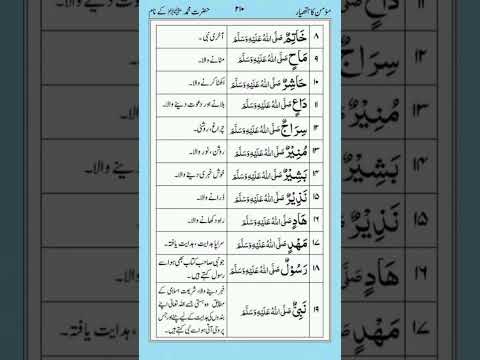 مؤمن کا ہتھیار ۲۱۰ حضرت محمد ﷺ کے نام
۸ خَاتِمٌ صَلَّى اللهُ عَلَيْهِ وَسَلَّمَ آخری نبی۔
۹ مَاحٍ صَلَّى اللهُ عَلَيْهِ وَسَلَّمَ مٹانے والا۔
۱۰ حَاشِرٌ صَلَّى اللهُ عَلَيْهِ وَسَلَّمَ اکٹھا کرنے والا۔
۱۱ دَاعٍ صَلَّى اللهُ عَلَيْهِ وَسَلَّمَ بلانے اور دعوت دینے والا۔
۱۲ سِرَاجٌ صَلَّى اللهُ عَلَيْهِ وَسَلَّمَ چراغ، روشنی۔
۱۳ مُنِيْرٌ صَلَّى اللهُ عَلَيْهِ وَسَلَّمَ روشن، نور والا۔
۱۴ بَشِيْرٌ صَلَّى اللهُ عَلَيْهِ وَسَلَّمَ خوش خبری دینے والا۔
۱۵ نَذِيْرٌ صَلَّى اللهُ عَلَيْهِ وَسَلَّمَ ڈرانے والا۔
۱۶ هَادٍ صَلَّى اللهُ عَلَيْهِ وَسَلَّمَ راہ دکھانے والا۔
۱۷ مَهْدٍ صَلَّى اللهُ عَلَيْهِ وَسَلَّمَ سراپا ہدایت، ہدایت یافتہ۔
۱۸ رَسُوْلٌ صَلَّى اللهُ عَلَيْهِ وَسَلَّمَ جو نبی صاحبِ کتاب بھی ہو اسے
رسول کہتے ہیں۔
۱۹ نَبِيٌّ صَلَّى اللهُ عَلَيْهِ وَسَلَّمَ خبر دینے والا، شریعت اسلامی کے
مطابق وہ ہستی جسے اللہ تعالیٰ اپنے
بندوں کی ہدایت کے لیے چنے اور جس
پر وحی آتی ہو اسے نبی کہتے ہیں۔